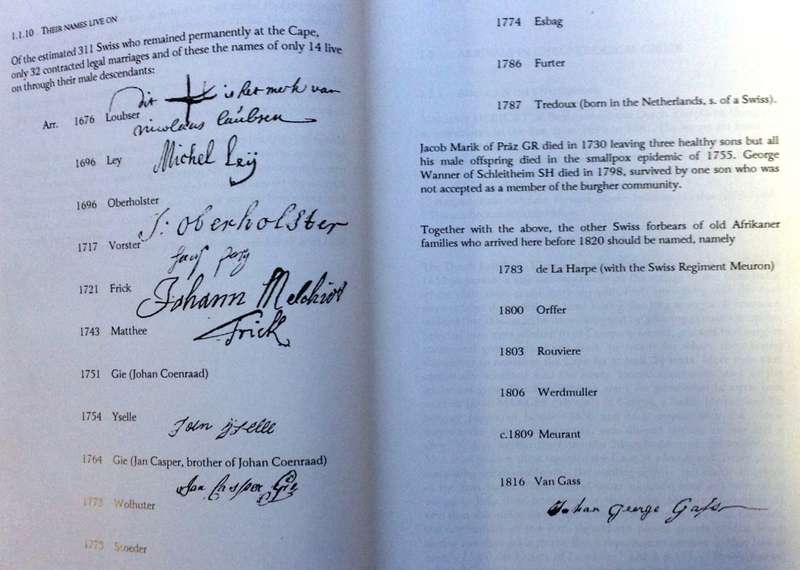 1.1.10 THEIR NAMES LIVE ON
Of the estimated 311 Swiss who remained permanently at the Cape,
only 32 contracted legal marriages and of these the names of only 14 live
on through their male descendants:
dit is het merk van
Arr. 1676 Loubser
nicolaus laubsen
1696 Ley
Michel Leÿ
1696 Oberholster
J: oberholster
1717 Vorster
1721 Frick
Johann Melchior
1743 Matthee
Frick
1751 Gie (Johan Coenraad)
1754 Yselle
ÿselle
1764 Gie (Jan Casper, brother of Johan Coenraad)
Jan Casper Gie
1773 Wolhuter
1773 Stroeder
1774 Esbag
1786 Furter
1787 Tredoux (born in the Netherlands, s. of a Swiss).
Jacob Marik of Präz GR died in 1730 leaving three healthy sons but all
his male offspring died in the smallpox epidemic of 1755. George
Wanner of Schleitheim SH died in 1798, survived by one son who was
not accepted as a member of the burgher community.
Together with the above, the other Swiss forbears of old Afrikaner
families who arrived here before 1820 should be named, namely
1783 de La Harpe (with the Swiss Regiment Meuron)
1800 Orffer
1803 Rouviere
1806 Werdmuller
c.1809 Meurant
1816 Van Gass
Johan George Gass